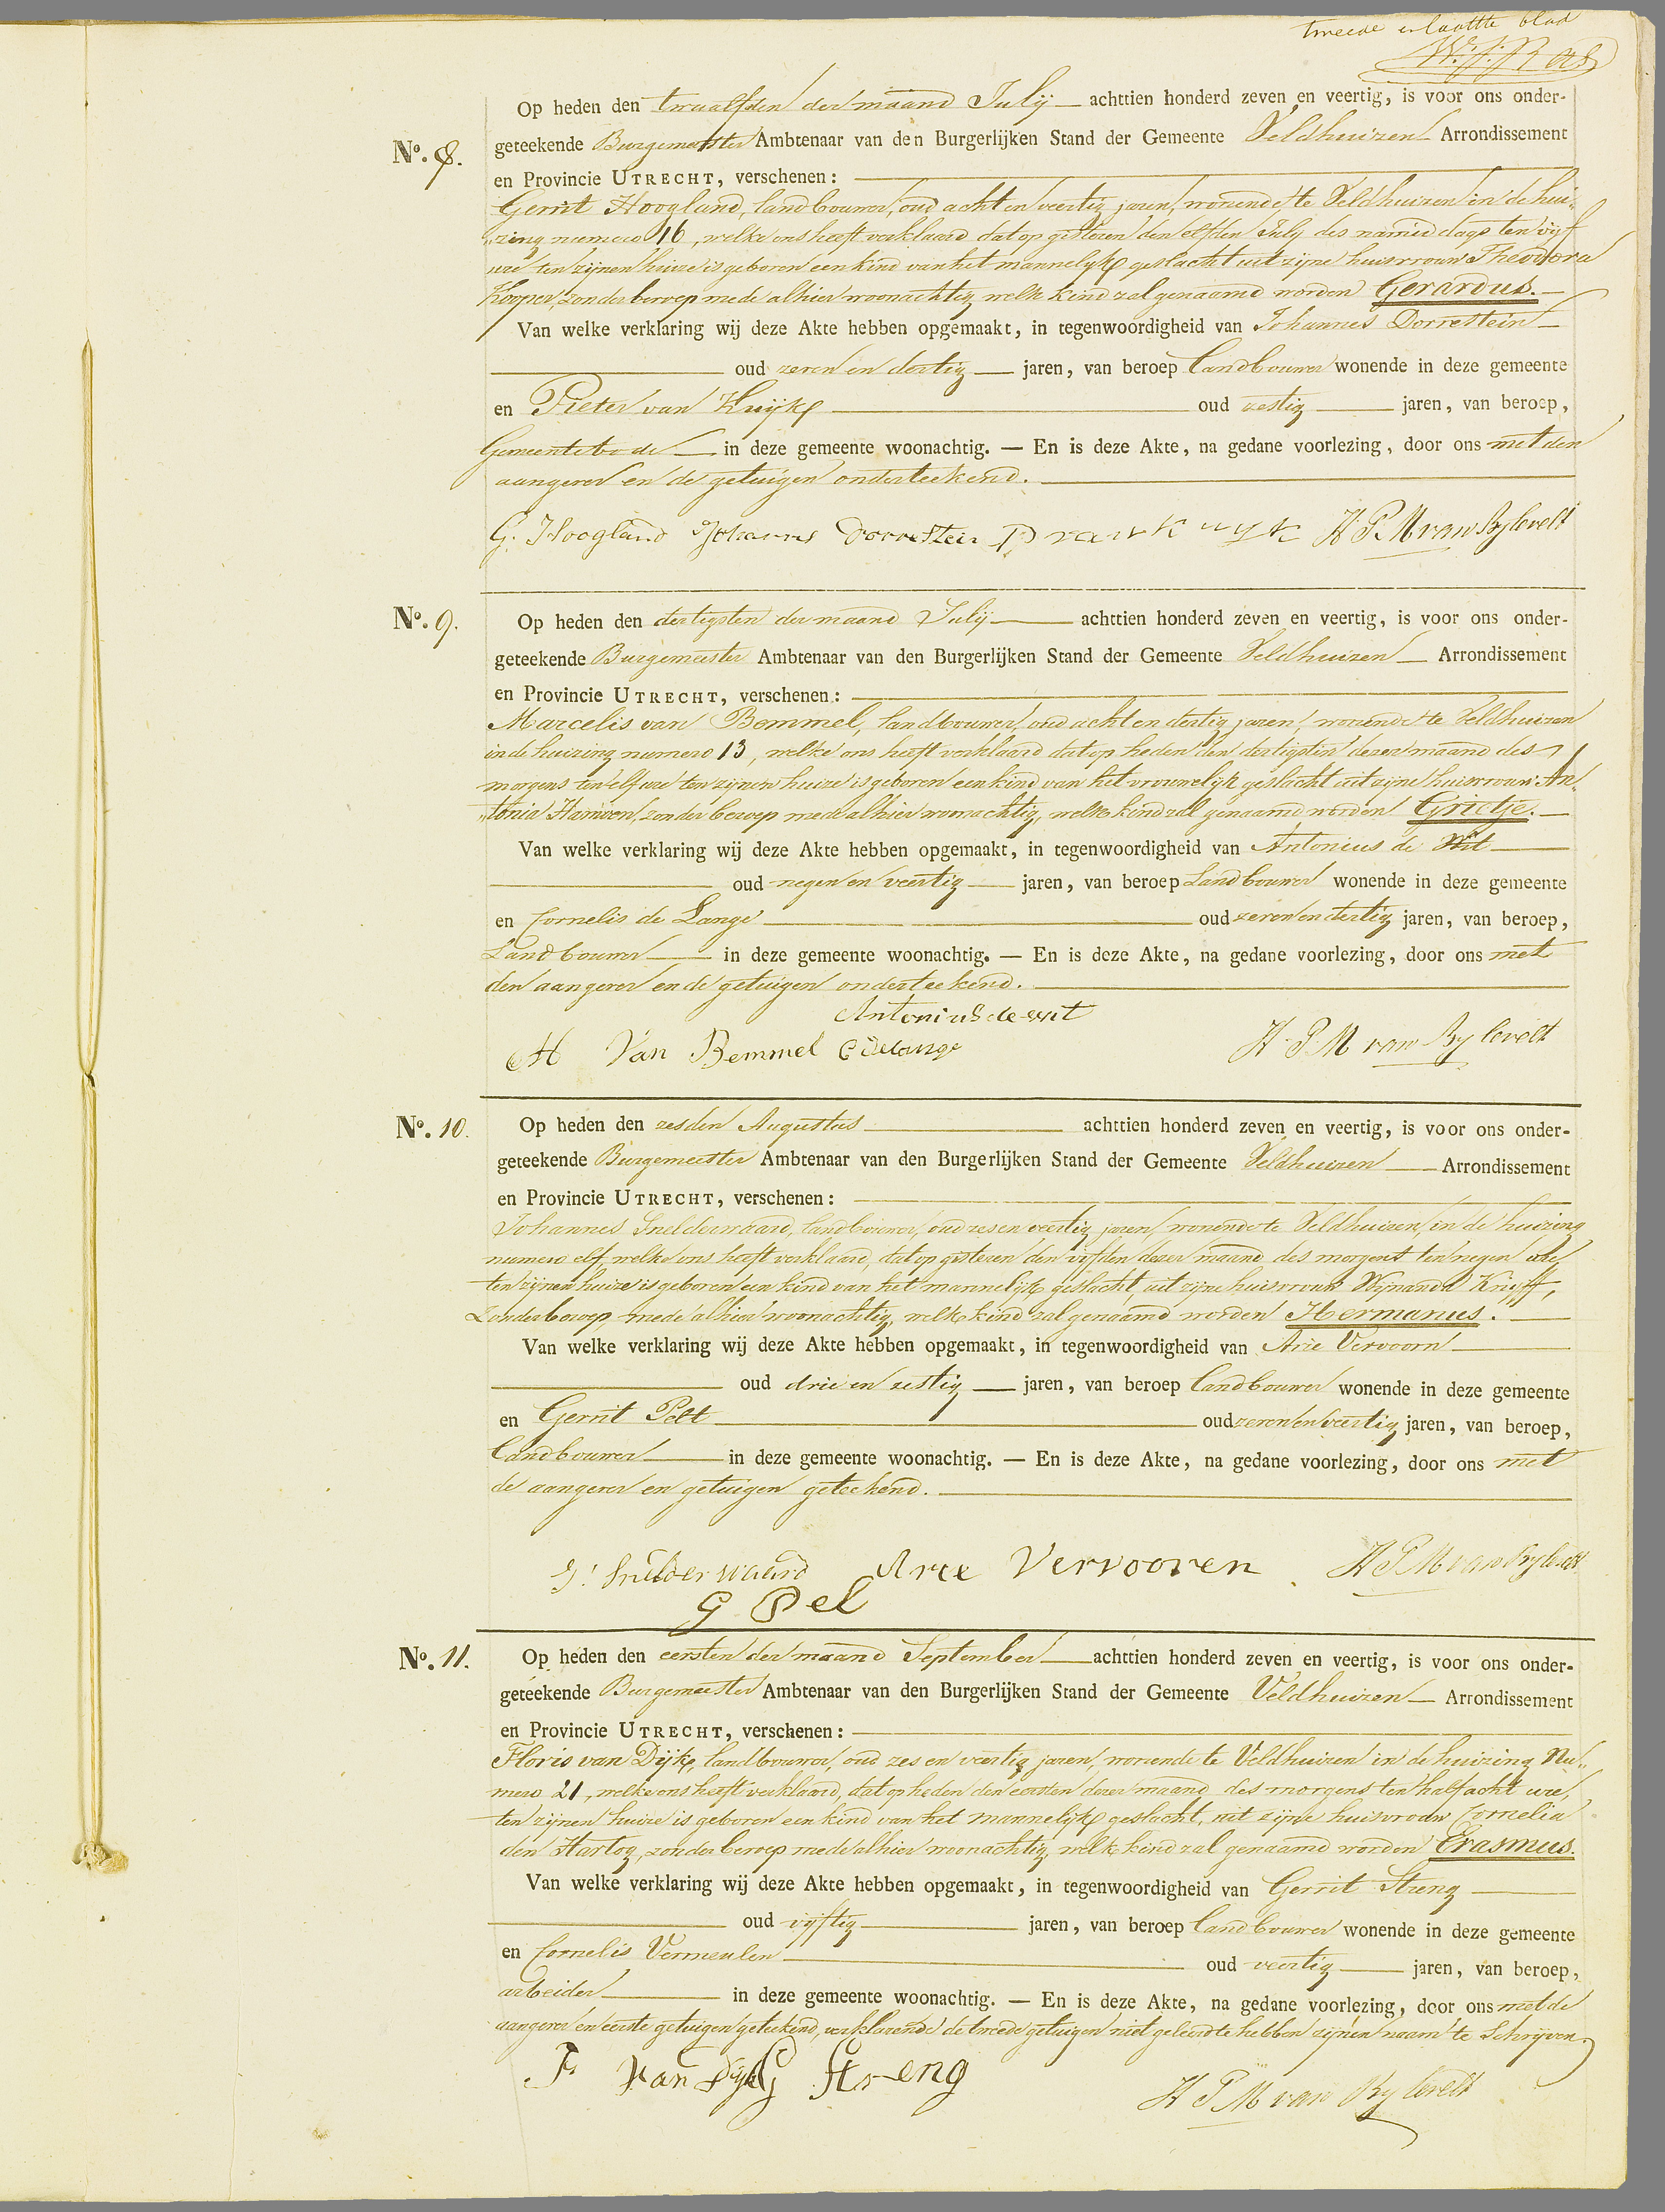 tweede en laatste blad
W. J. Ras
Op heden den twaalfden der maand Julij achttien honderd zeven en veertig, is voor ons onder-
No. 8. geteekende Burgemeester Ambtenaar van den Burgerlijken Stand der Gemeente Veldhuizen Arrondissement
en Provincie UTRECHT, verschenen:
Gerrit Hoogland, landbouwer, oud acht en veertig jaren, wonende te Veldhuizen in de hui-
zing numero 16, welke ons heeft verklaard dat op gisteren den elfden July des namiddags ten vijf
ure ten zijnen huize is geboren een kind van het mannelyk geslacht uit zijne huisvrouw Theodora
Kooper, zonder beroep mede alhier woonachtig welk kind zal genaamd worden Gerardus.
Van welke verklaring wij deze Akte hebben opgemaakt, in tegenwoordigheid van Johannes Dorrestein
oud zeven en dertig jaren, van beroep landbouwer wonende in deze gemeente
en Pieter van Kuijk oud zestig jaren, van beroep,
Gemeentebode in deze gemeente woonachtig. — En is deze Akte, na gedane voorlezing, door ons met den
aangever en de getuigen onderteekend.
G. Hoogland Johannes Dorrestein P van Kuyk H P M van Bylevelt
No. 9. Op heden den dertigsten der maand Julij achttien honderd zeven en veertig, is voor ons onder-
geteekende Burgemeester Ambtenaar van den Burgerlijken Stand der Gemeente Veldhuizen Arrondissement
en Provincie UTRECHT, verschenen:
Marcelis van Bemmel, landbouwer, oud acht en dertig jaren, wonende te Veldhuizen
in de huizing numero 13, welke ons heeft verklaard dat op heden den dertigsten dezer maand des
morgens ten elf ure ten zijnen huize is geboren een kind van het vrouwelyk geslacht uit zijne huisvrouw An-
tonia Hansen, zonder beroep mede alhier woonachtig, welk kind zal genaamd worden Grietje.
Van welke verklaring wij deze Akte hebben opgemaakt, in tegenwoordigheid van Antonius de Wit
oud negen en veertig jaren, van beroep Landbouwer wonende in deze gemeente
en Cornelis de Lange oud zeven en dertig jaren, van beroep,
Landbouwer in deze gemeente woonachtig. — En is deze Akte, na gedane voorlezing, door ons met
den aangever en de getuigen onderteekend.
Antonius de wit
M Van Bemmel C de Lange H P M van Bylevelt
No. 10. Op heden den zesden Augustus achttien honderd zeven en veertig, is voor ons onder-
geteekende Burgemeester Ambtenaar van den Burgerlijken Stand der Gemeente Veldhuizen Arrondissement
en Provincie UTRECHT, verschenen:
Johannes Snelderwaard, landbouwer, oud zes en veertig jaren, wonende te Veldhuizen, in de huizing
numero elf, welke ons heeft verklaard, dat op gisteren den vijfden dezer maand des morgens ten negen ure,
ten zijnen huize is geboren een kind van het mannelijk geslacht, uit zijne huisvrouw Wijnanda Knieff,
Zonder beroep mede alhier woonachtig, welk kind zal genaamd worden Hermanus.
Van welke verklaring wij deze Akte hebben opgemaakt, in tegenwoordigheid van Arie Vervoorn
oud drie en zestig jaren, van beroep landbouwer wonende in deze gemeente
en Gerrit Pelt oud zeven en veertig jaren, van beroep,
landbouwer in deze gemeente woonachtig. — En is deze Akte, na gedane voorlezing, door ons met
de aangever en getuigen geteekend.
J: Snelderwaard Arie Vervooren H P M van Bylevelt
G Pel
No. 11. Op heden den eersten der maand September achttien honderd zeven en veertig, is voor ons onder-
geteekende Burgemeester Ambtenaar van den Burgerlijken Stand der Gemeente Veldhuizen Arrondissement
en Provincie UTRECHT, verschenen:
Floris van Dijk, landbouwer, oud zes en veertig jaren, wonende te Veldhuizen in de huizing Nu-
mero 21, welke ons heeft verklaard, dat op heden den eersten dezer maand des morgens ten half acht ure,
ten zijnen huize is geboren een kind van het mannelijk geslacht, uit zijne huisvrouw Cornelia
den Hartog, zonder beroep mede alhier woonachtig, welk kind zal genaamd worden Erasmus.
Van welke verklaring wij deze Akte hebben opgemaakt, in tegenwoordigheid van Gerrit Streng
oud vijftig jaren, van beroep landbouwer wonende in deze gemeente
en Cornelis Vermeulen oud veertig jaren, van beroep,
arbeider in deze gemeente woonachtig. — En is deze Akte, na gedane voorlezing, door ons met de
aangever en eerste getuigen geteekend, verklarende de tweede getuigen niet geleerd te hebben zijnen naam te Schrijven.
F Van Dyk G Streng H P M van Bylevelt